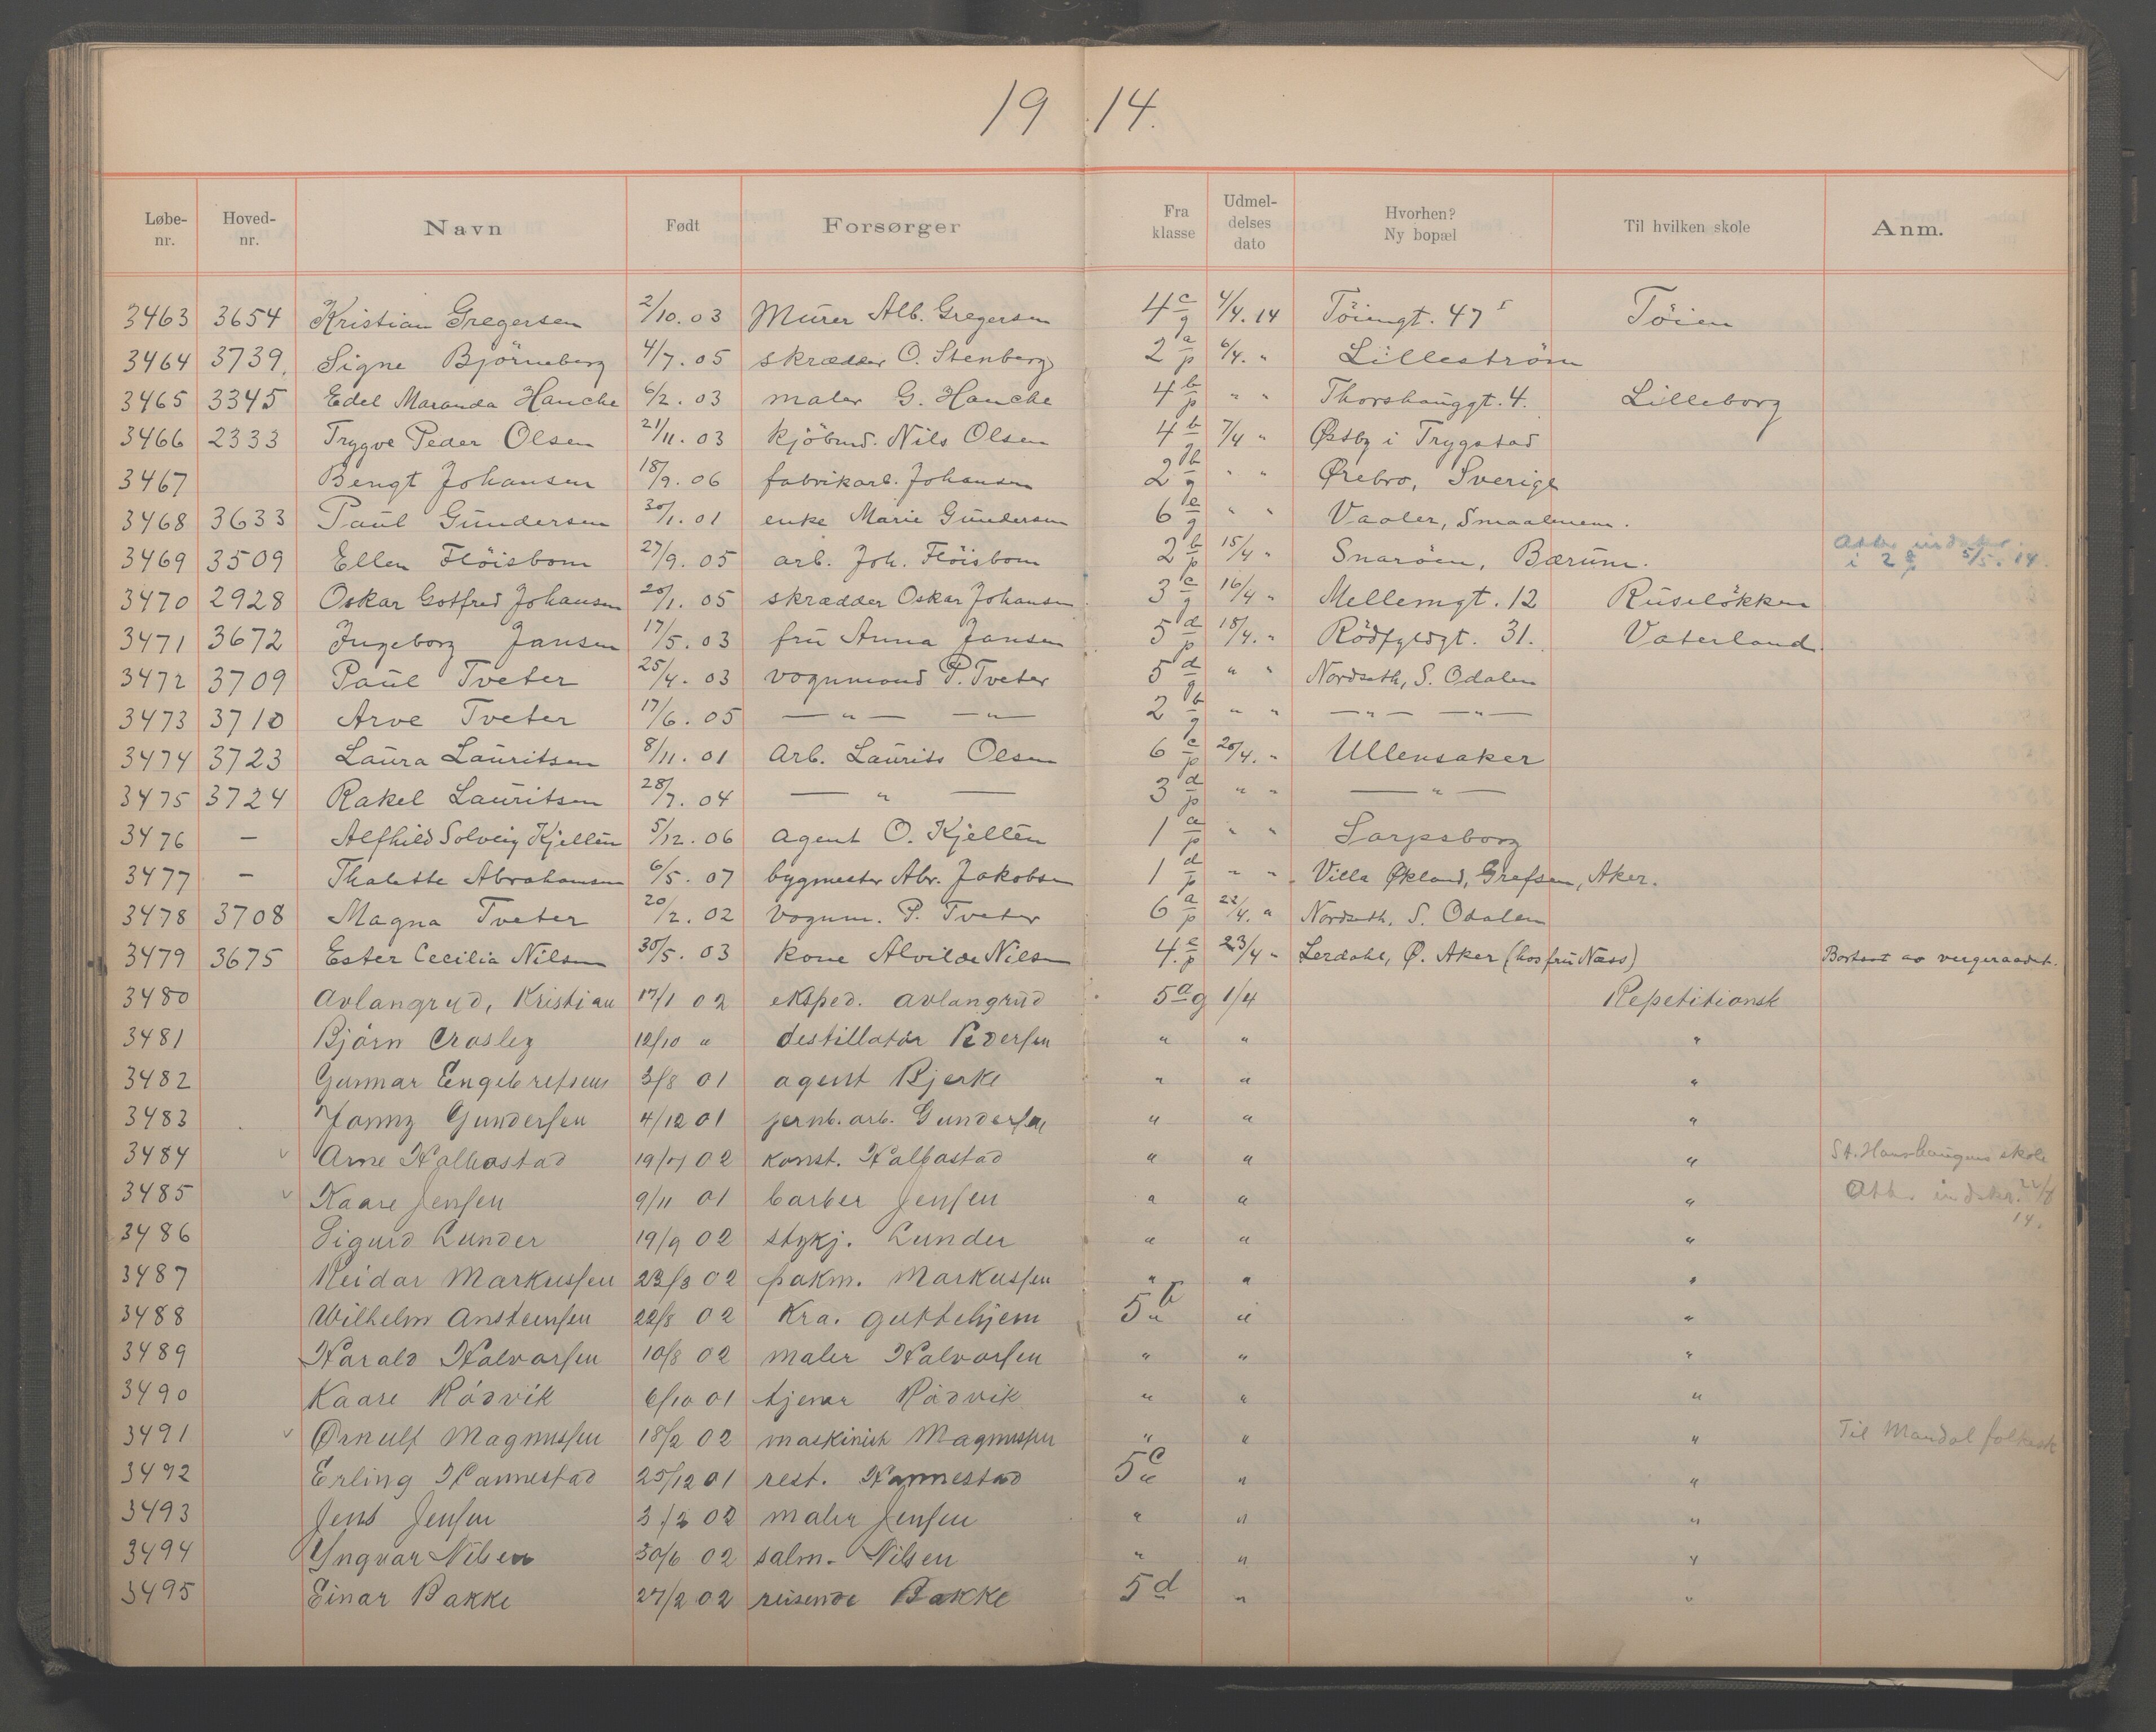 19 14.
Løbe-nr. Hoved-nr. Navn Født Forsørger Fra klasse Udmel-delses dato Hvorhen? Ny bopæl Til hvilken skole Anm.
3463 3654 Kristian Gregersen 2/10. 03 Murer Alb. Gregersen 4 c/g 4/4. 14 Töiengt. 47 I Töien
3464 3739. Signe Björneberg 4/7. 05 skrædder O. Stenberg 2 a/p 6/4. " Lilleström
3465 3345 Edel Maranda Hauche 6/2. 03 maler G. Hauche 4 b/p " " Thorshauggt. 4. Lilleborg
3466 2333 Trygve Peder Olsen 21/11. 03 kjöbmd. Nils Olsen 4 b/g 7/4 " Østby i Trygstad
3467 Bengt Johansen 18/9. 06 fabrikarb. Johansen 2 b/g " " Ørebro, Sverige
3468 3633 Paul Gundersen 30/1. 01 enke Marie Gundersen 6 e/g " " Vaaler, Smaalenene.
3469 3509 Ellen Flöisbom 27/9. 05 arb. Joh. Flöisbom 2 b/p 15/4 " Snaröen, Bærum. Atter indskr. i 2 e/p 5/5. 14.
3470 2928 Oskar Gotfred Johansen 20/1. 05 skrædder Oskar Johansen 3 c/g 16/4 " Mellemgt. 12 Ruselökken
3471 3672 Ingeborg Jansen 17/5. 03 fru Anna Jansen 5 d/p 18/4. " Rödfyldgt. 31. Vaterland.
3472 3709 Paul Tveter 25/4. 03 vognmand P. Tveter 5 d/g " " Nordseth, S. Odalen
3473 3710 Arve Tveter 17/6. 05 — " — — " — 2 b/g " " — " — — " —
3474 3723 Laura Lauritsen 8/11. 01 Arb. Laurits Olsen 6 c/p 20/4. " Ullensaker
3475 3724 Rakel Lauritsen 28/7. 04 — " — 3 d/p " " — " —
3476 — Alfhild Solveig Kjellén 5/12. 06 agent O. Kjellén 1 a/p " " Sarpsborg
3477 — Thalette Abrahamsen 6/5. 07 bygmester Abr. Jakobsen 1 d/p " " Villa Økland, Grefsen, Aker.
3478 3708 Magna Tveter 20/2. 02 Vognm. P. Tveter 6 a/p 22/4. " Nordseth, S. Odalen
3479 3675 Ester Cecilia Nilsen 30/5. 03 kone Alvilde Nilsen 4. e/p 23/4 " Lerdahl, Ø. Aker (hos fru Næss) Bortsat av vergeraadet.
3480 Avlangrud, Kristian 17/1 02 eksped. Avlangrud 5 a g 1/4 Repetitionsk
3481 Björn Crosley 12/10 " destillatör Pedersen " " "
3482 Gunnar Engebretsen 3/8 01 agent Bjerke " " "
3483 Jonny Gundersen 4/12 01 jernb. arb. Gundersen " " "
3484 v Arne Kolbastad 02 konst. Kolbastad " " " St. Hanshaugens skole
3485 v Kaare Jensen 9/11 01 barber Jensen " " " Atter indskr. 22/4 14.
3486 Sigurd Lunder 19/9 02 stykj. Lunder " " "
3487 Reidar Markussen 23/3 02 pakm. Markussen " " "
3488 Wilhelm Ansteinsen 22/8 02 Kra. guttehjem 5 b " " "
3489 Harald Halvorsen 10/8 02 maler Halvorsen " " "
3490 Kaare Rödvik 6/10 01 tjener Rödvik " " "
3491 v Ørnulf Magnussen 18/2 02 maskinist Magnussen " " " Til Mandal folkesk
3492 Erling Hannestad 25/12 01 rest. Hannestad 5 c " " "
3493 Jens Jensen 3/3 02 maler Jensen " " "
3494 Yngvar Nilsen 30/6 02 salm. Nilsen " " "
3495 Einar Bakke 27/2 02 reisende Bakke 5 d " "